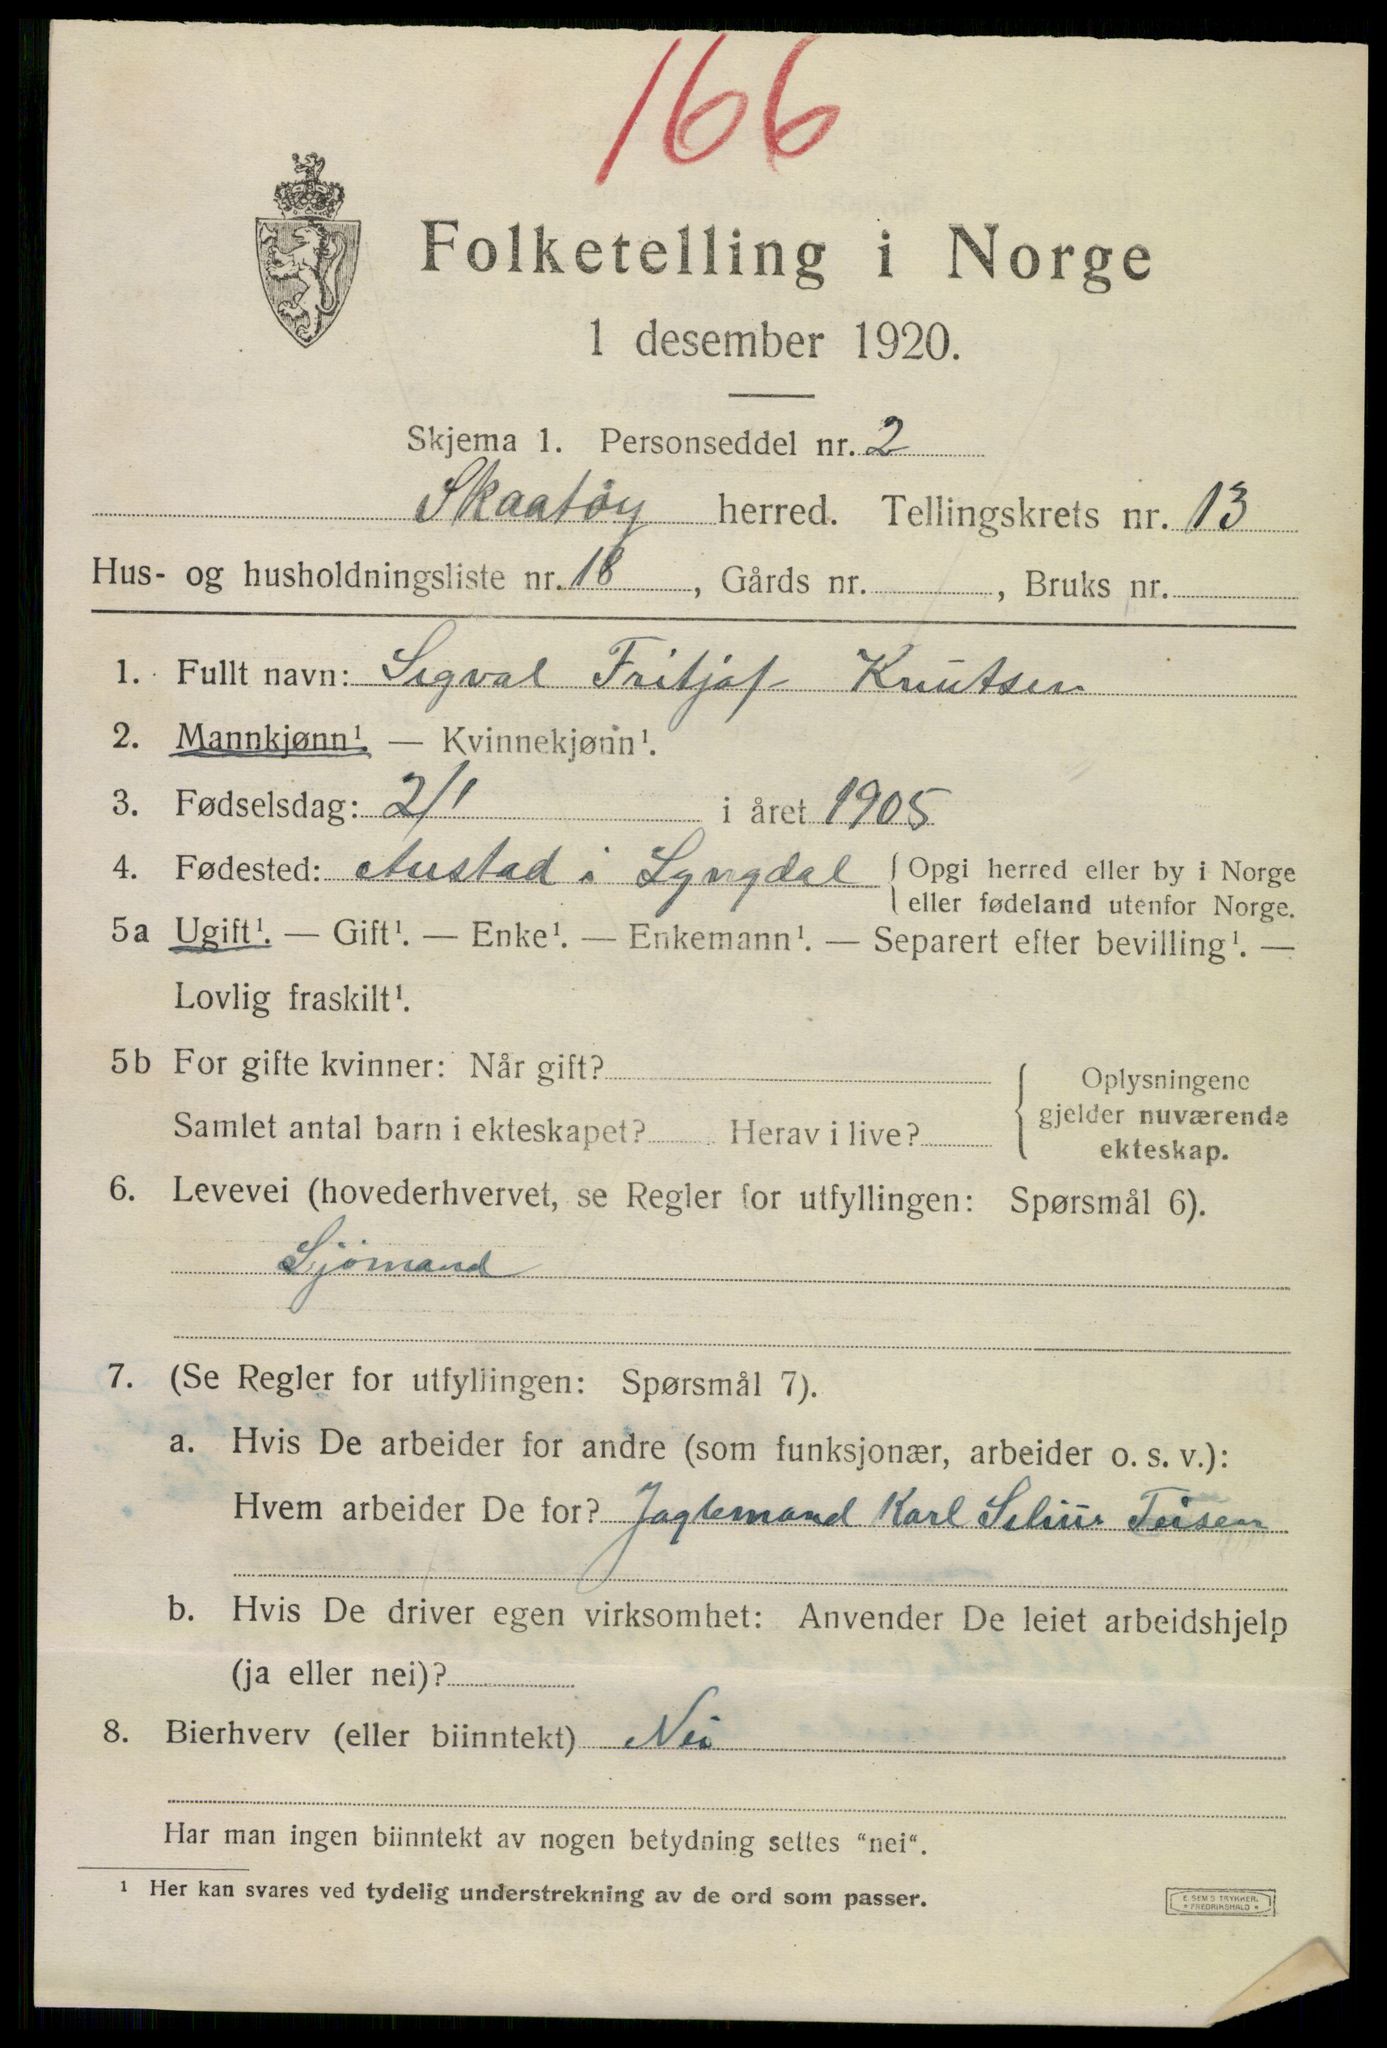 166
Folketelling i Norge
1 desember 1920.
Skjema 1. Personseddel nr. 2
Skaatøy herred. Tellingskrets nr. 13
Hus- og husholdningsliste nr. 18, Gårds nr. , Bruks nr.
1. Fullt navn: Sigval Fritjof Knutsen
2. Mannkjønn¹. — Kvinnekjønn¹.
3. Fødselsdag: 2/1 i året 1905
4. Fødested: Austad i Lyngdal { Opgi herred eller by i Norge
eller fødeland utenfor Norge.
5a Ugift¹. — Gift¹. — Enke¹. — Enkemann¹. — Separert efter bevilling¹. —
Lovlig fraskilt¹.
5b For gifte kvinner: Når gift?
Samlet antal barn i ekteskapet? Herav i live?
{ Oplysningene
gjelder nuværende
ekteskap.
6. Levevei (hovederhvervet, se Regler for utfyllingen: Spørsmål 6).
Sjömand
7. (Se Regler for utfyllingen: Spørsmål 7).
a. Hvis De arbeider for andre (som funksjonær, arbeider o. s. v.):
Hvem arbeider De for? Jagtemand Karl
b. Hvis De driver egen virksomhet: Anvender De leiet arbeidshjelp
(ja eller nei)?
8. Bierhverv (eller biinntekt) Nei
Har man ingen biinntekt av nogen betydning settes "nei".
¹ Her kan svares ved tydelig understrekning av de ord som passer.
E. SEM'S TRYKKERI
* FREDRIKSHALD *